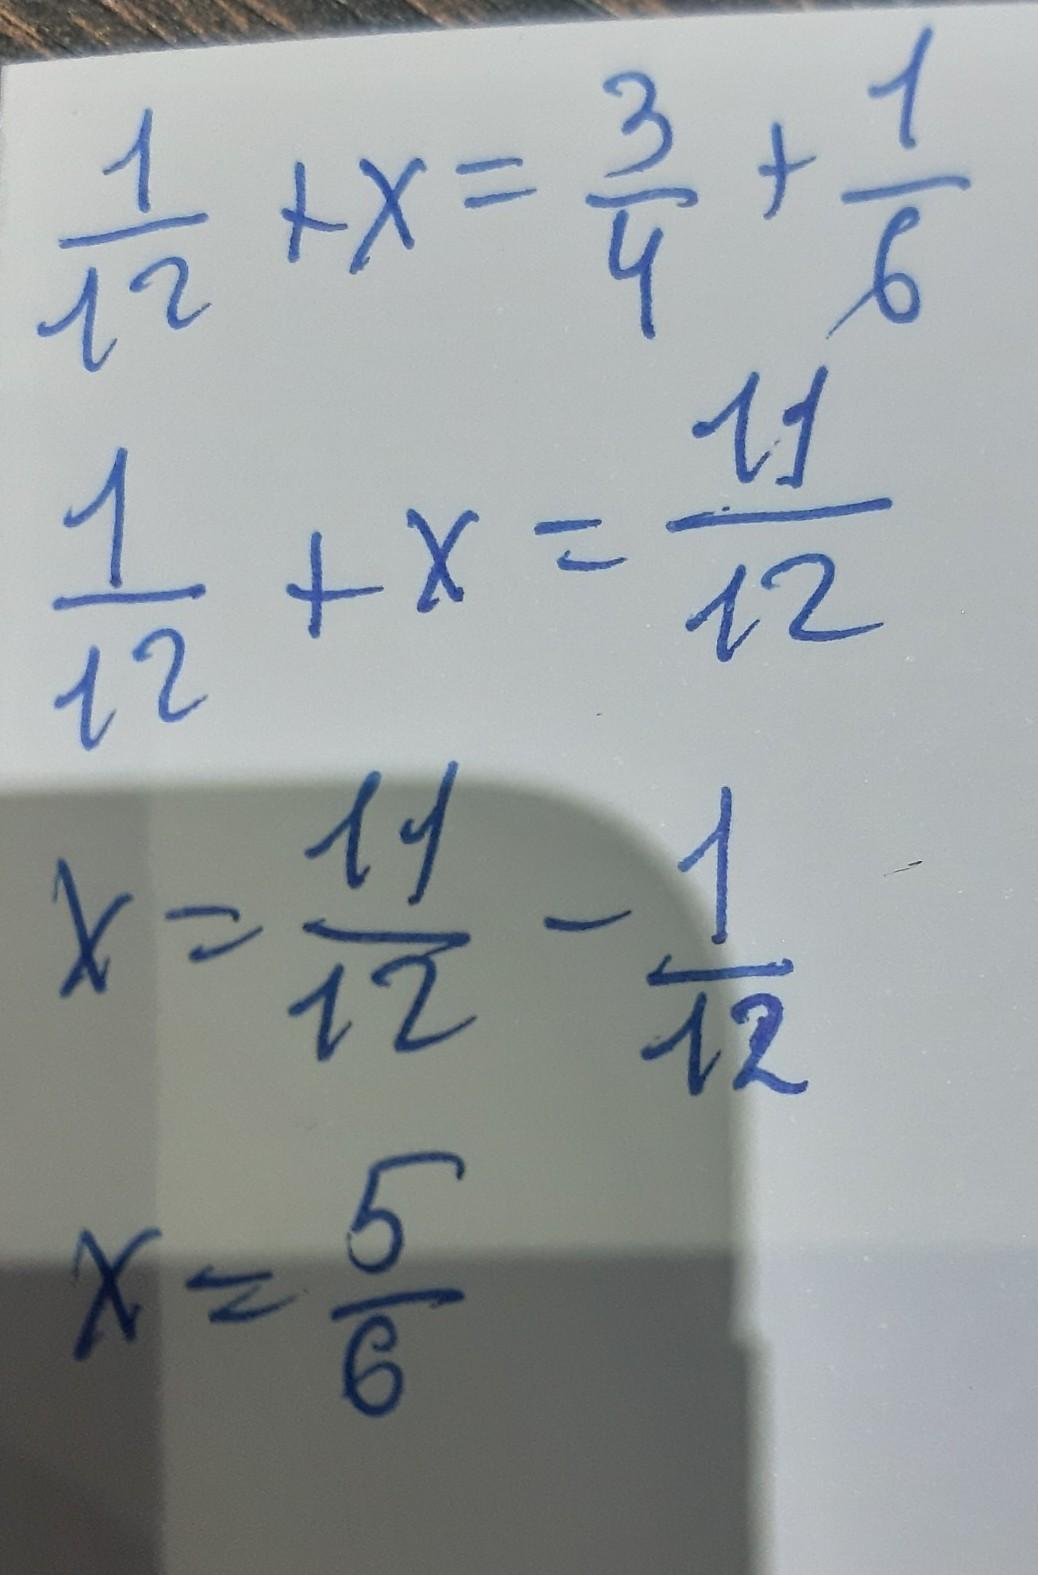 1/12 + x = 3/4 + 1/6
1/12 + x = 11/12
x = 11/12 - 1/12
x = 5/6